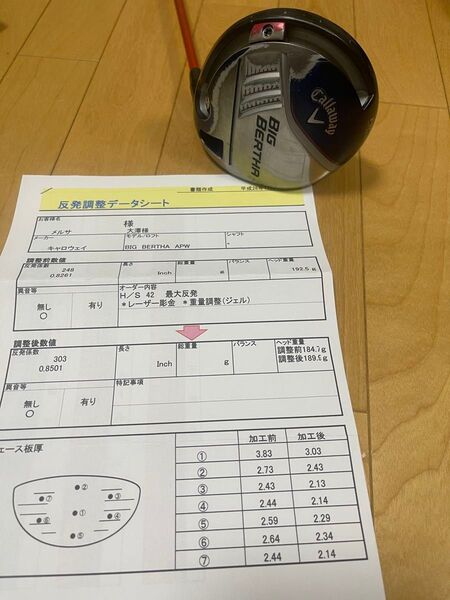 Callaway
BIG
BERTHA
書類作成 平成26年
反発調整データシート
お客様名
メルサ 様
大澤様
メーカー モデル/ロフト シャフト
キャロウェイ BIG BERTHA APW
調整前数値
反発係数 長さ 総重量 バランス ヘッド重量
248
0.8261 Inch g 192.5 g
異音等 オーダー内容
無し 有り H/S 42 最大反発
○ *レーザー彫金 *重量調整(ジェル)
調整後数値
反発係数 長さ 総重量 バランス ヘッド重量
303 調整前184.7g
0.8501 Inch g 調整後189.9g
異音等 特記事項
無し 有り
○
ェース板厚
加工前 加工後
① 3.83 3.03
② 2.73 2.43
③ 2.43 2.13
④ 2.44 2.14
⑤ 2.59 2.29
⑥ 2.64 2.34
⑦ 2.44 2.14
●②
●⑦ ●③
●①
●⑥ ●④
●⑤